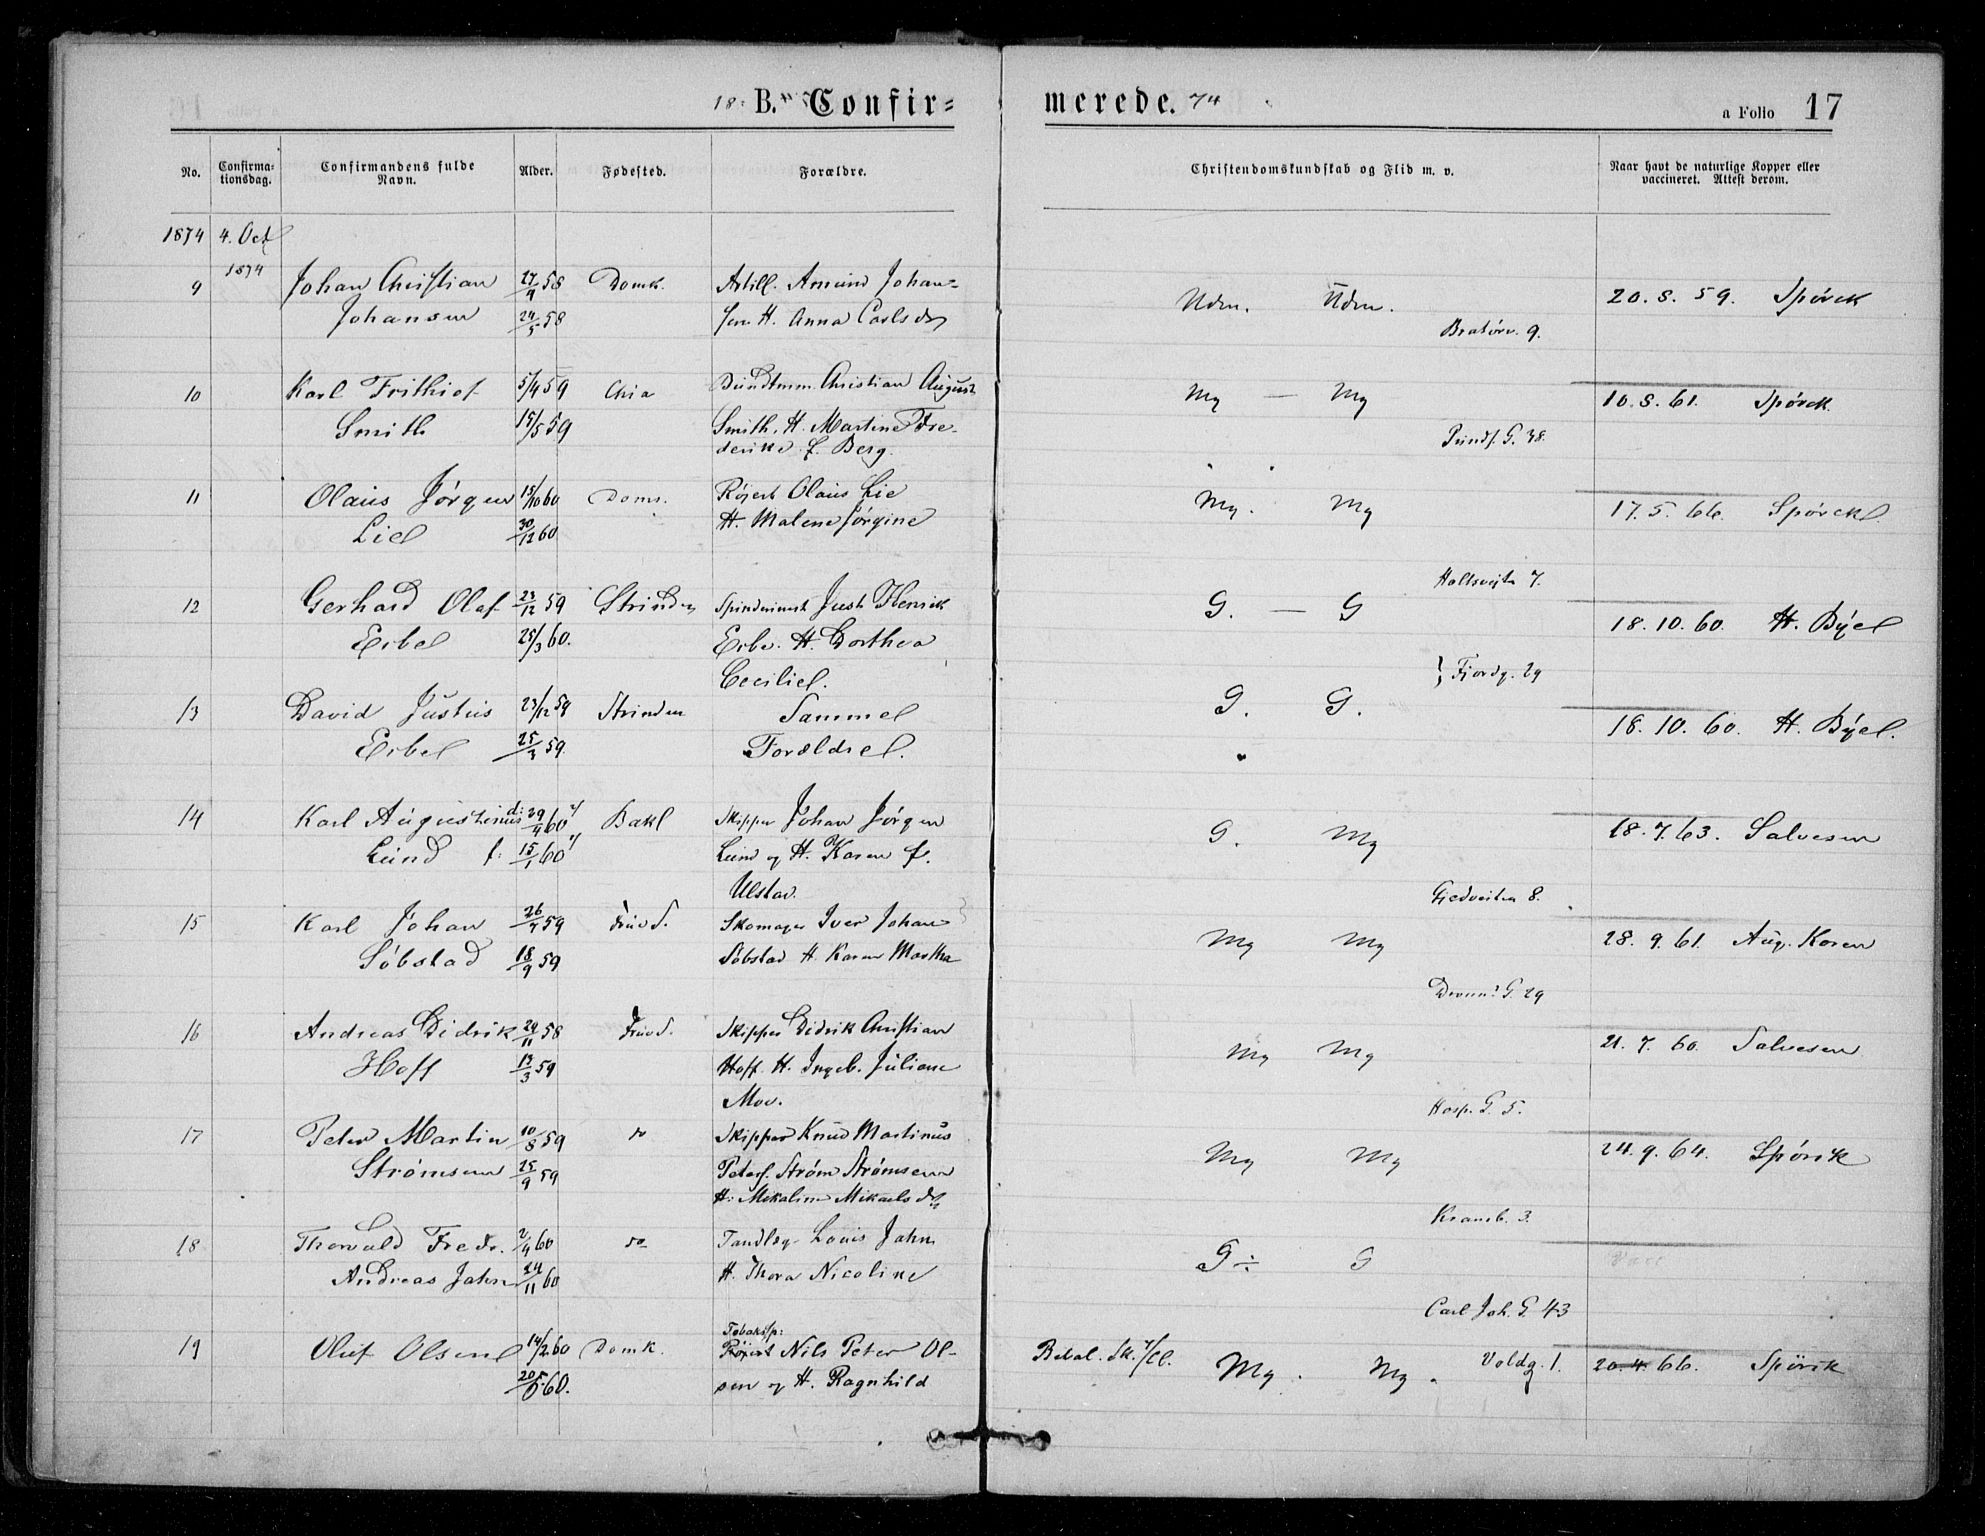 18 B. Confir= merede. 74
a Folio 17
No. Confirma-tionsdag. Confirmandens fulde Navn. Alder. Fødested. Forældre. Christendomskundskab og Flid m. v. Naar havt de naturlige Kopper eller vaccineret. Attest derom.
1874 4. Oct
1874
9 Johan Christian 27/9 58 Domk. Artill. Amund Johan= Udm. Udm. 20. 8. 59. Spörck
Johansen 24/5 58 sen H. Anna Carlsd. Bratørv. 9.
10 Karl Frithiof 5/4 59 Chia Christian August Mg — Mg 10. 8. 61. Spörck.
Smith 15/5 59 Smith. H. Martine Fre-
derike f. Berg. Prinds. G. 38.
11 Olaus Jørgen 15/10 60 Domk. Røjert Olaus Lie Mg. Mg 17. 5. 66. Spörck
Lie 30/12 60 H. Malene Jørgine
Holtsvejta 7.
12 Gerhard Olaf 23/12 59 Strinden Spindemest Just Henrik G. — G 18. 10. 60. H. Býe
Erbe 25/3 60. Erbe. H. Dorthea
Cecilie. } Fjordg. 29
13 David Justus 23/12 59 Strinden Samme G. G. 18. 10. 60. H. Býe.
Erbe 25/3 59. Forældre.
14 Karl Augustinus d: 29/9 60 Bakl Skipper Johan Jørgen G. Mg 18. 7. 63. Salvesen
Lund f: 15/1 60 Lund og H. Karen f.
Ulstad. Gjedveiten 8.
15 Karl Johan 26/7 59 Frue S. Skomager Iver Johan Mg Mg 28. 9. 61. Aug. Koren
Søbstad 18/9 59 Søbstad H. Karen Martha
Dronn. G. 29
16 Andreas Didrik 29/11 58 Frue S. Skipper Didrik Christian Mg Mg 21. 7. 60. Salvesen
Hoff 13/3 59 Hoff H. Ingeb. Juliane
Moe. Hosp. G. 5.
17 Peter Martin 10/8 59 do Skipper Knud Martinus Mg Mg 24. 9. 64. Spörck
Strømsen 25/9 59 Peters. Strøm Strømsen
H: Mikaline Mikaelsd. Kramb. 3.
18 Thorvald Fredr. 2/9 60 do Tandlæg Louis Jahn G ÷ G
Andreas Jahn 24/11 60 H. Thora Nicoline
Carl Joh. G 43
Tobaksp:
19 Oluf Olsen 14/2 60 Domk. Røjert Nils Peter Ol- Betal. Sk. Mg. Mg. Voldg. 1. 20. 4. 66. Spörck
20/5 60. sen og H. Ragnhild